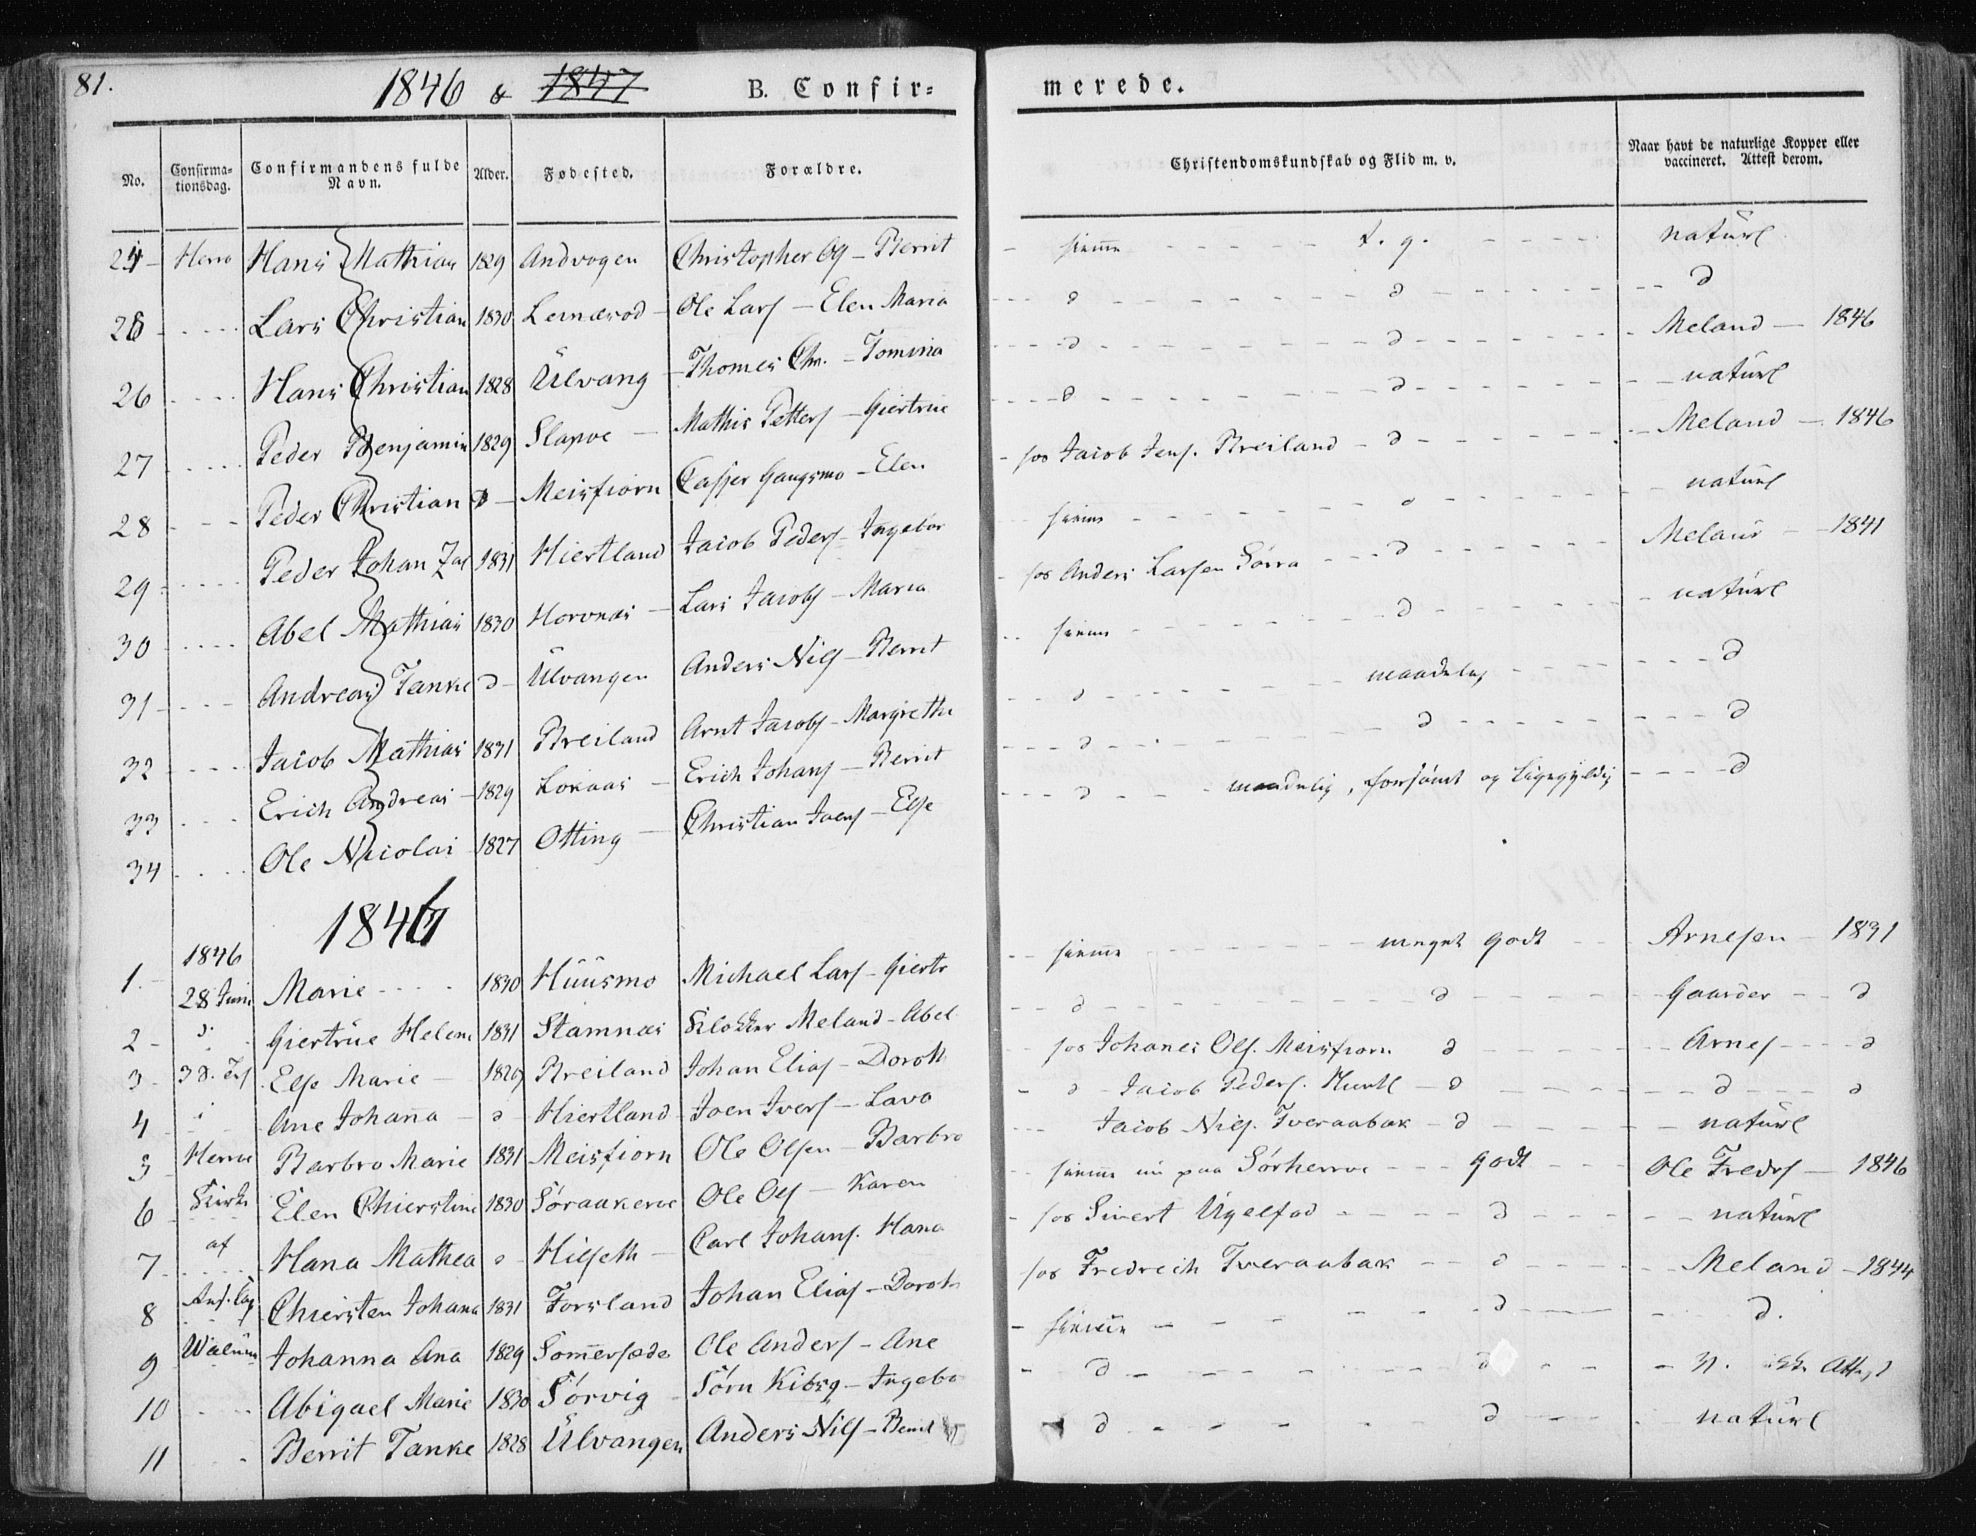 81.
1846 & 1847 B. Confir= merede.
No. Confirma-tionsdag. Confirmandens fulde Navn. Alder. Fødested. Forældre. Christendomskundskab og Flid m. v. Naar havt de naturlige Kopper eller vaccineret. Attest derom.
24 - Herrø Hans Mathias 1829 Andvogen Christopher Og - Berrit - hiemme - - - t. g. - - - naturl
25 - - - Lars Christian 1830 Lernæsod - Ole Lars - Elen Maria - - - d - - - d - - - d
26 - - - Hans Christian 1828 Ulvang - Thomes Chr. - Tomina - - - d - - - d - - - Meland - 1846
27 - - - Peder Benjamin 1829 Slapøe - Mathis Petters - Giertrue - - - d - - - d - - - naturl
28 - - - Peder Christian d - Meisfiorn Casper Gangsmo - Elen - hos Jacob Jens. Breiland - d - - - Meland - 1846
29 - - - Peder Johan Zac 1831 Hiertland Jacob Peders - Ingebor - - hiemme - - - d - - - naturl
30 - - - Abel Mathias 1830 Horvnæs - Lars Jacobs - Maria - hos Anders Larsen Sørra - - - d - - - Meland - 1841
31 - - - Andreas Tanke d - Ulvangen Anders Nils - Berrit - - hiemme - - - d - - - naturl
32 - - - Jacob Mathias 1831 Breiland Arnt Jacobs - Margrethe - - - d - - - maadelig - - - d
33 - - - Erich Andreas - 1829 Loknas - Erich Johans - Berrit - - - d - - - d - - - d
34 - - - Ole Nicolai 1827 Otting - Christian Joens - Else - - - d - - - maadelig, forsømt og ligegyldig - - - d
1846
1. - 1846 28 Juni Marie - - - 1830 Huusmo Michael Lars - Giertr - - hiemme - - - meget godt - - Arnesen - 1831
2 - d. Giertrue Helene 1831 Stamnæs Klokker Meland - Abel - - - d - - - d - - - Gaarder - - d
3 - Else Marie - 1829 Breiland Johan Elias - Doroth - hos Johanes Ols. Meisfiorn d - - - Arnes - - - d
4 Ane Johanna - d - Hiertland - Joen Ivers - Lava - d - Jacob Peders. Hiertl - d - - - d - - - d
5 - Herrøe Barbro Marie 1831 Meisfiorn Ole Olsen - Barbro - - - Jacob Nils. Tveraabak - d - - - naturl
6 Kirke Elen Chierstine 1830 Søraakeren Ole Ols - Karen - - hiemme nu paa Sørherrøe - - - godt - - - Ole Freds - 1846
7 - af Hana Mathea d - Hilseth - Carl Johans. Hana - hos Sivert Ugelfad - - - d - - - naturl
8 Chiersten Johana 1831 Forsland Johan Elias - Doroth hos Fredrech Tveraabak - - d - - - Meland - 1844
9 Walum Johanna Ana 1829 Sommersæde Ole Anders - Ane - hiemme - - - d - - - d.
10 - - - Abigael Marie 1830 Sørvig - Sørn Kibsg - Ingebo - d - - - d - - - n. Attest
11 - Berrit Tanke 1828 Ulvangen Anders Nils - Berrit d - - - d - - - naturl